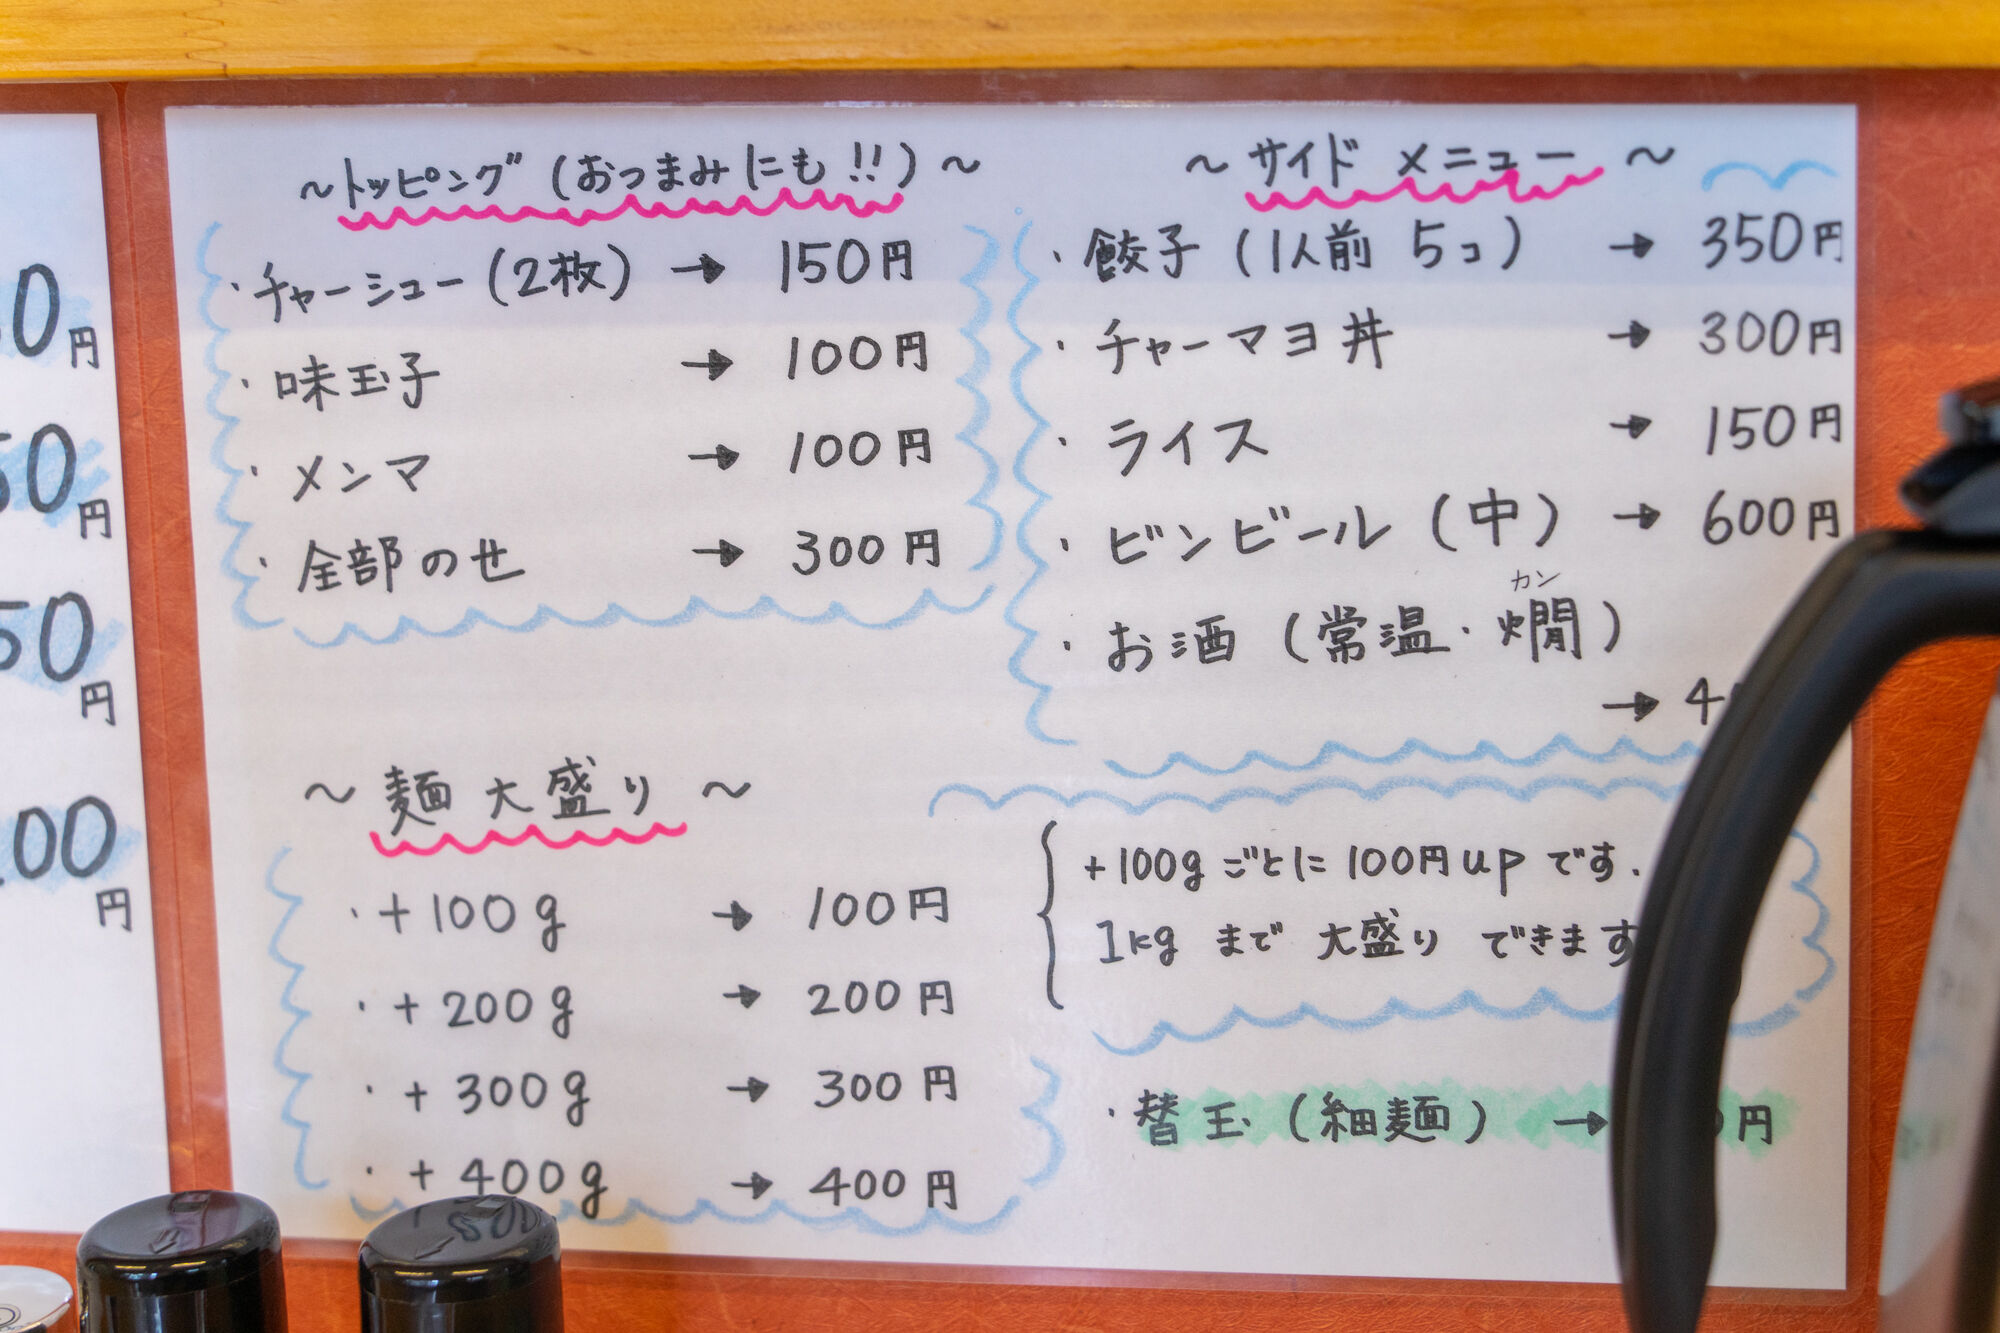 ～トッピング(おつまみにも!!)～
・チャーシュー(2枚) → 150円
・味玉子 → 100円
・メンマ → 100円
・全部のせ → 300円
～麺大盛り～
・+100g → 100円
・+200g → 200円
・+300g → 300円
・+400g → 400円
～サイドメニュー～
・餃子(1人前 5コ) → 350円
・チャーマヨ丼 → 300円
・ライス → 150円
・ビンビール(中) → 600円
カン
・お酒(常温・燗)
→ 4
+100gごとに100円upです.
1kgまで大盛りできます
・替玉(細麺) → 円
0円
50円
50円
00円